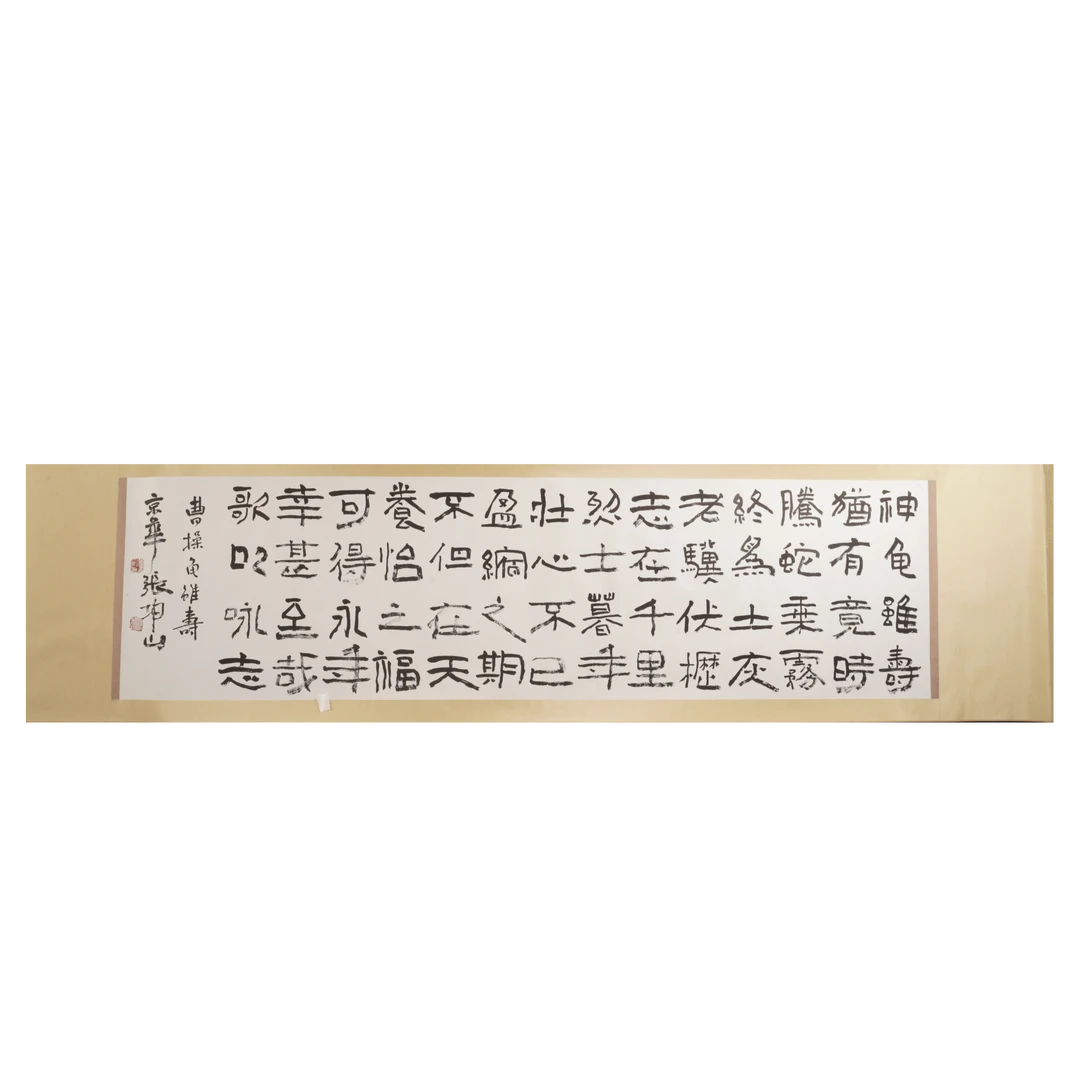 神龟雖壽
猶有竟時
騰蛇乘霧
終爲土灰
老驥伏櫪
志在千里
烈士暮年
壯心不已
盈縮之期
不但在天
養怡之福
可得永年
幸甚至哉
歌以咏志
曹操龟雖壽
京華張山